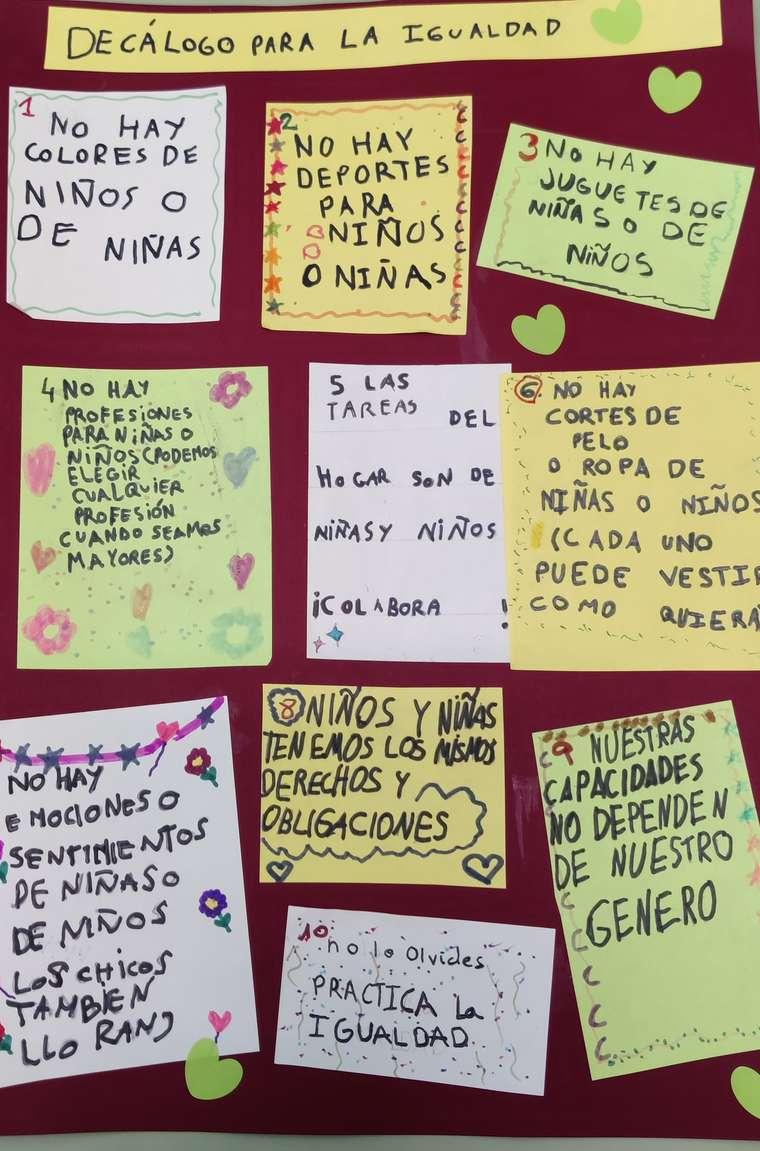 DECÁLOGO PARA LA IGUALDAD
1
NO HAY
COLORES DE
NIÑOS O
DE NIÑAS
2
NO HAY
DEPORTES
PARA
NIÑOS
O NIÑAS
3 NO HAY
JUGUETES DE
NIÑAS O DE
NIÑOS
4 NO HAY
PROFESIONES
PARA NIÑAS O
NIÑOS (PODEMOS
ELEGIR
CUALQUIER
PROFESIÓN
CUANDO SEAMOS
MAYORES)
5 LAS
TAREAS DEL
HOGAR SON DE
NIÑAS Y NIÑOS
¡COLABORA !
6. NO HAY
CORTES DE
PELO
O ROPA DE
NIÑAS O NIÑOS
(CADA UNO
PUEDE VESTIR
COMO QUIERA
NO HAY
EMOCIONES O
SENTIMIENTOS
DE NIÑAS O
DE NIÑOS
LOS CHICOS
TAMBIEN
LLORAN)
8 NIÑOS Y NIÑAS
TENEMOS LOS MISMOS
DERECHOS Y
OBLIGACIONES
9 NUESTRAS
CAPACIDADES
NO DEPENDEN
DE NUESTRO
GENERO
10
no lo olvides
PRACTICA la
IGUALDAD